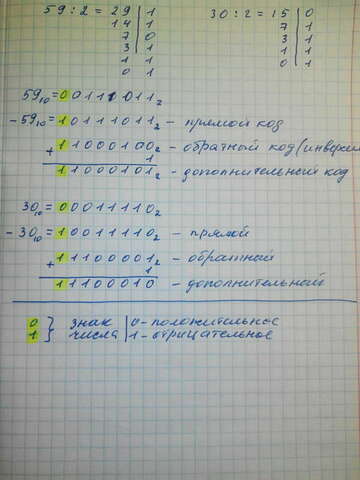 59 : 2 = 29 | 1
14 | 1
7 | 0
3 | 1
1 | 1
0 | 1
30 : 2 = 15 | 0
7 | 1
3 | 1
1 | 1
0 | 1
59₁₀ = 00111011₂
- 59₁₀ = 10111011₂ - прямой код
+ 11000100₂ - обратный код (инверсн
1
11000101₂ - дополнительный код
30₁₀ = 000011110₂
- 30₁₀ = 10011110₂ - прямой
+ 11100001₂ - обратный
1
11100010 - дополнительный
0 } знак | 0 - положительное
1 } числа | 1 - отрицательное